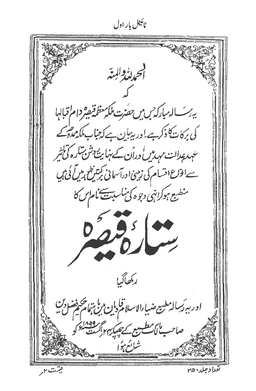 ٹائیٹل بار اول
الحمد للہ والمنہ
کہ
یہ رسالہ مبارکہ جس میں حضرت ملکہ معظمہ قیصرہ دام اقبالہا
کی برکات کا ذکر ہے اور یہ بیان ہے کہ جناب ملکہ ممدوحہ کے
عہد عدالت مہد میں اور ان کے نہایت روشن ستارہ کی تاثیر
سے انواع اقسام کی زمینی اور آسمانی برکتیں ظہور میں آئی ہیں
مطبع ہو کر انہی وجوہ کی مناسبت سے نام اس کا
ستارہ قیصرہ
رکھا گیا
اور یہ رسالہ مطبع ضیاء الاسلام قادیان میں باہتمام حکیم فضل دین
صاحب مالک مطبع کے چھپکر ۲۴ اگست ۱۸۹۹ء کو
شائع ہوا
تعداد جلد
قیمت